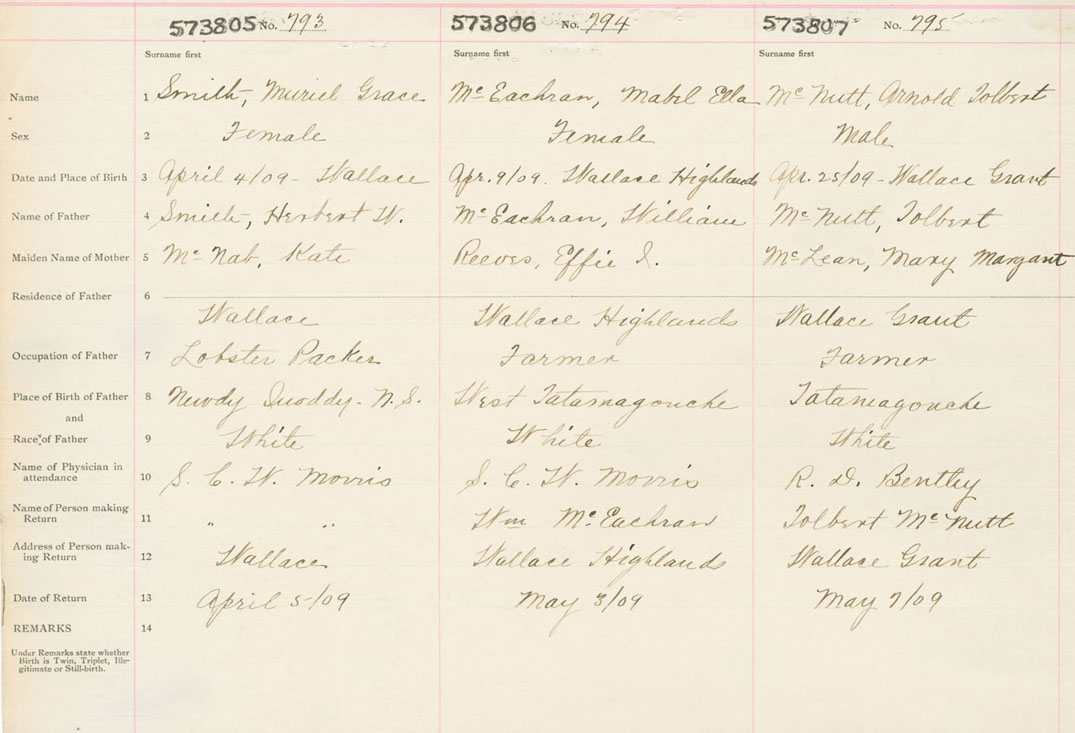 573805 No. 793 573806 No. 794 573807 No. 795
Surname first Surname first Surname first
Name 1 Smith, Muriel Grace McEachran, Mabel Ella McNutt, Arnold Tolbert
Sex 2 Female Female Male
Date and Place of Birth 3 April 4/09 - Wallace Apr. 9/09. Wallace Highlands Apr. 25/09 - Wallace Grant
Name of Father 4 Smith, Herbert W. McEachran, William McNutt, Tolbert
Maiden Name of Mother 5 McNab, Kate Reeves, Effie I. McLean, Mary Margant
Residence of Father 6
Wallace Wallace Highlands Wallace Grant
Occupation of Father 7 Lobster Packer Farmer Farmer
Place of Birth of Father 8 Newdy Quoddy - N.S. West Tatamagouche Tatamagouche
and
Race of Father 9 White White White
Name of Physician in
attendance 10 S. C. W. Morris S. C. W. Morris R. D. Bentley
Name of Person making
Return 11 " " Wm McEachran Tolbert McNutt
Address of Person mak-
ing Return 12 Wallace Wallace Highlands Wallace Grant
Date of Return 13 April 5/09 May 3/09 May 7/09
REMARKS 14
Under Remarks state whether
Birth is Twin, Triplet, Ille-
gitimate or Still-birth.